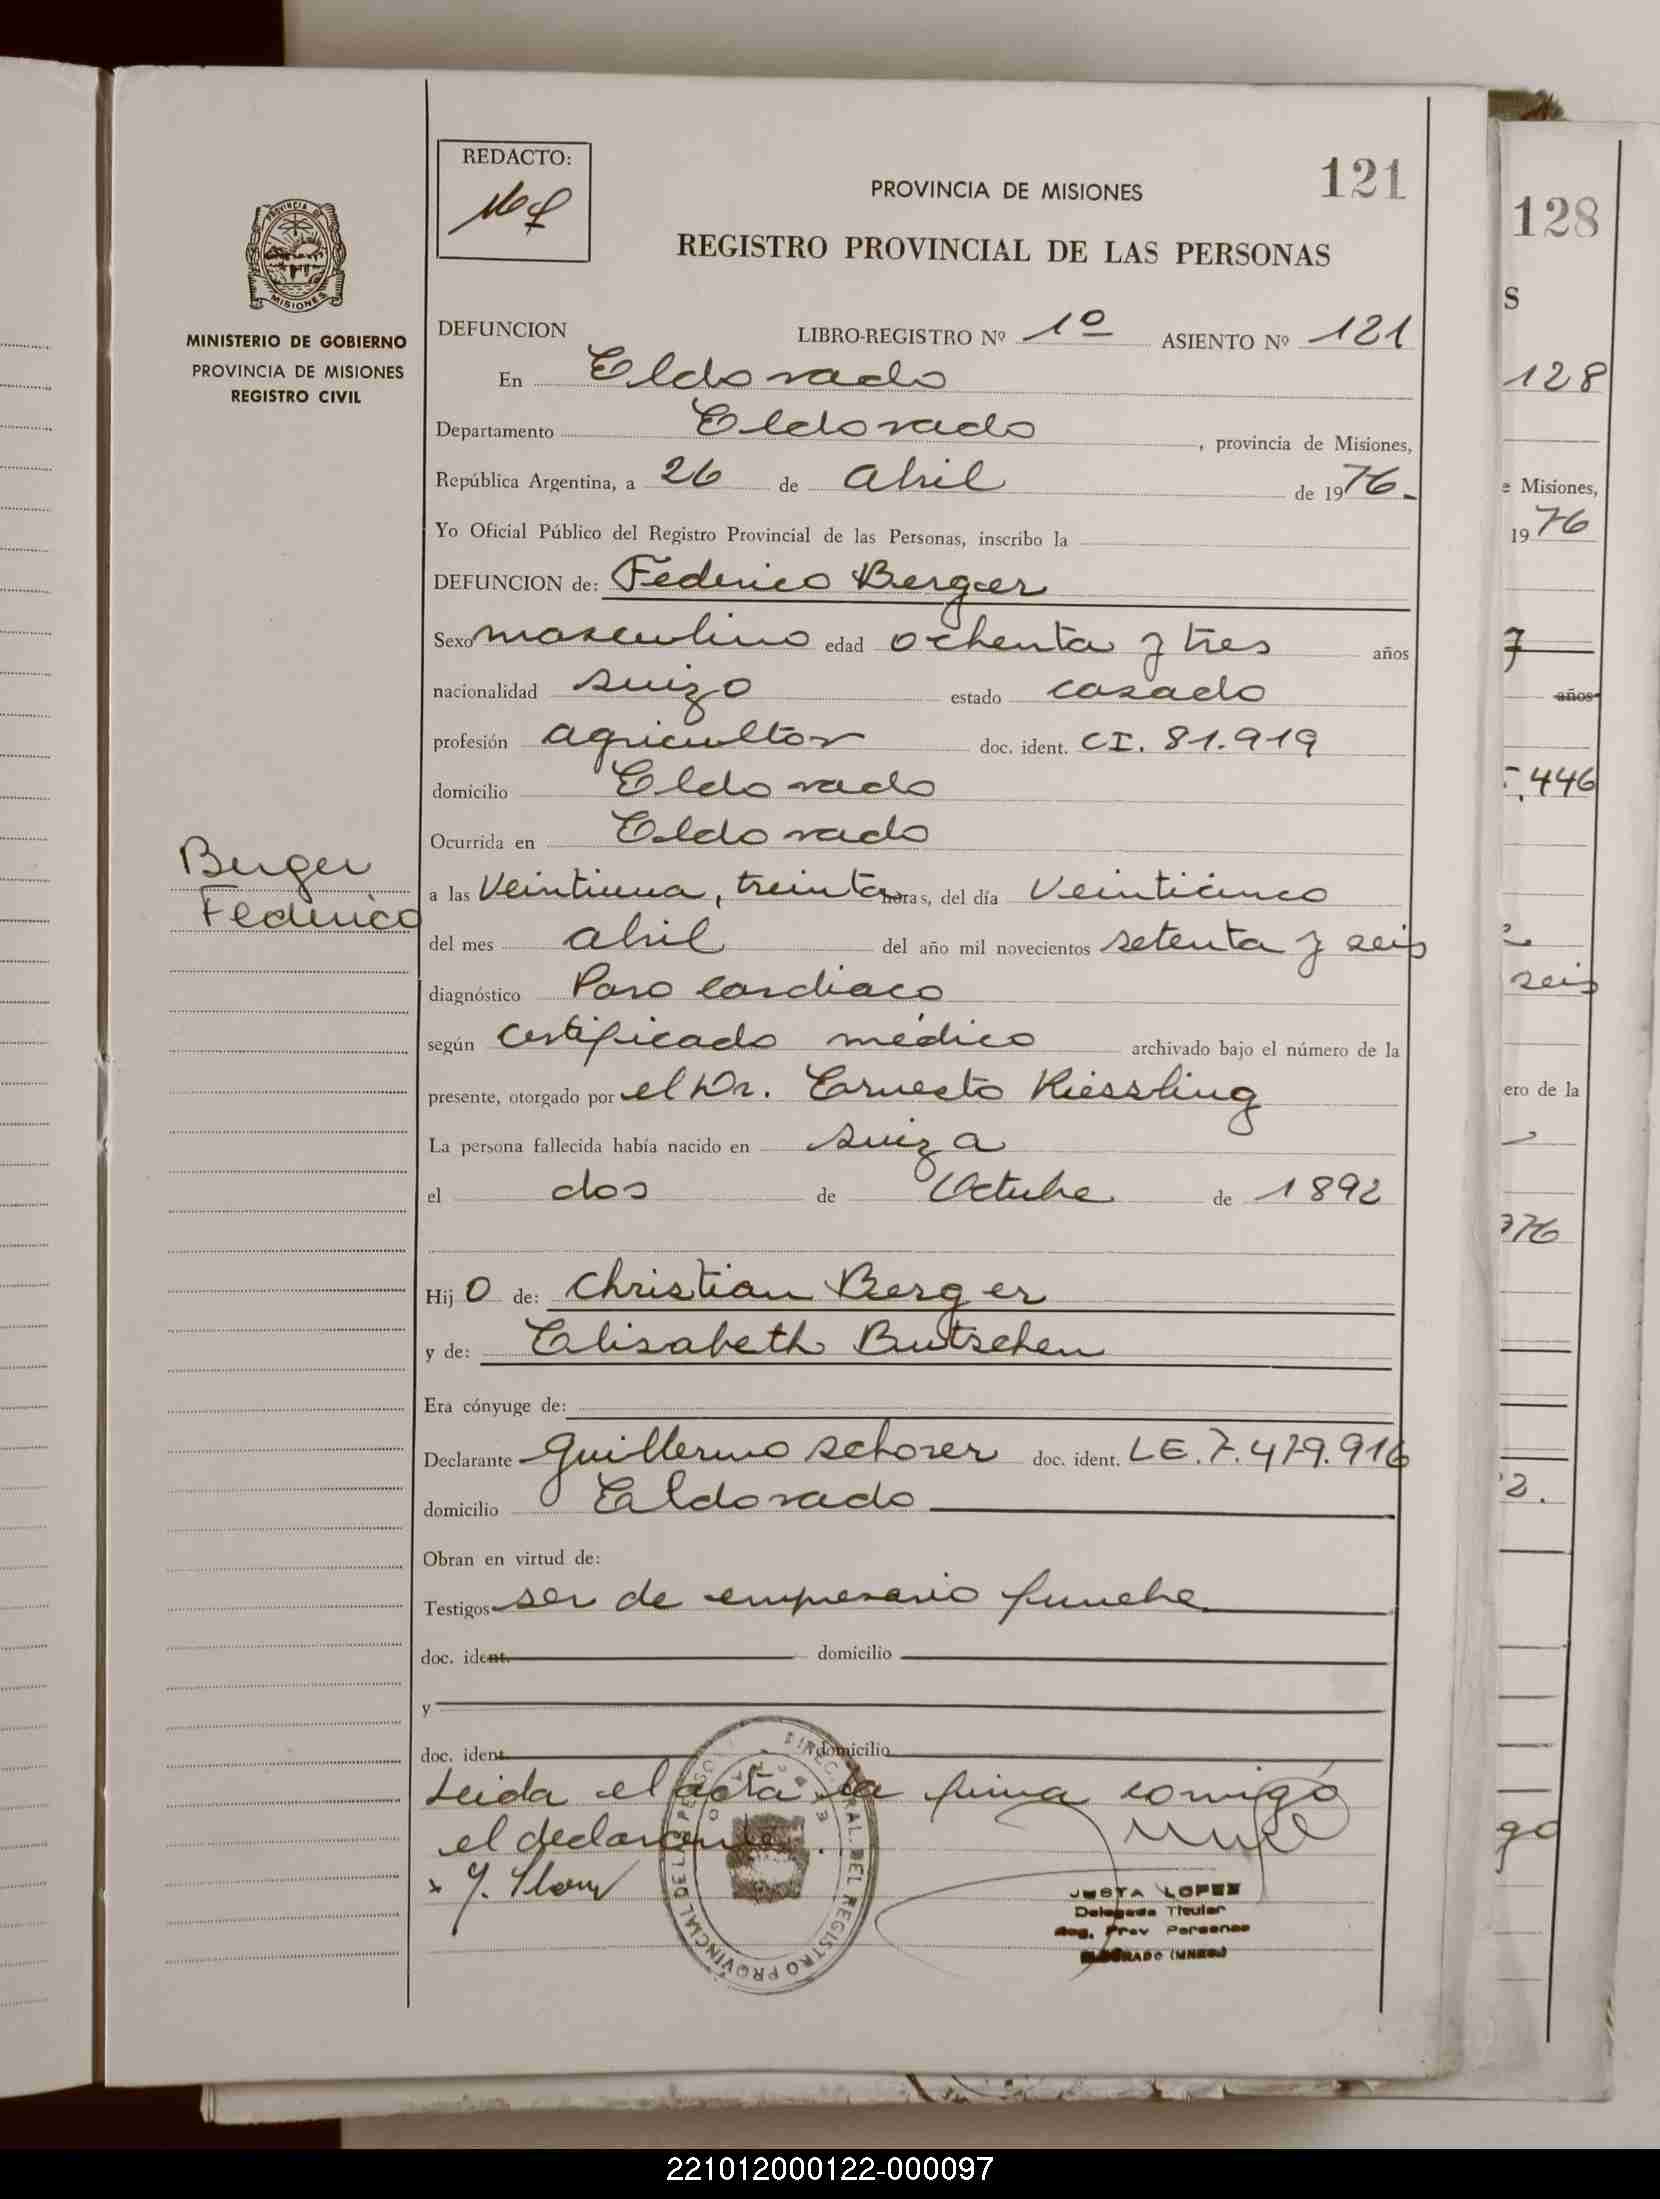 REDACTO:
PROVINCIA DE MISIONES
121
REGISTRO PROVINCIAL DE LAS PERSONAS
PROVINCIA DE
MISIONES
MINISTERIO DE GOBIERNO
PROVINCIA DE MISIONES
REGISTRO CIVIL
DEFUNCION LIBRO-REGISTRO Nº 1º ASIENTO Nº 121
En Eldorado
Departamento Eldorado, provincia de Misiones,
República Argentina, a 26 de abril de 1976.
Yo Oficial Público del Registro Provincial de las Personas, inscribo la
DEFUNCION de: Federico Berger
Sexo masculino edad ochenta y tres años
nacionalidad suizo estado casado
profesión agricultor doc. ident. CI. 81.919
domicilio Eldorado
Ocurrida en Eldorado
Berger
Federico
a las Veintiuna, treinta horas, del día Veinticinco
del mes abril del año mil novecientos setenta y seis
diagnóstico Paro cardiaco
según certificado médico archivado bajo el número de la
presente, otorgado por el Dr. Ernesto Kiessling
La persona fallecida había nacido en suiza
el dos de Octubre de 1892
Hij o de: Christian Berger
y de: Elisabeth Butschen
Era cónyuge de:
Declarante Guillermo Schorer doc. ident. LE. 7.479.916
domicilio Eldorado
Obran en virtud de:
Testigos ser de empresario funebre
doc. ident. domicilio
y
doc. ident. domicilio
Leida el acta la firma conmigo
el declarante.
JUSTA LOPEZ
Delegada Titular
Reg. Prov Personas
ELDORADO (MNES.)
DIREC. GRAL. DEL REGISTRO PROVINCIAL DE LAS PERSO
128
S
128
e Misiones,
1976
y
años
.446
seis
ero de la
976
2.
go
221012000122-000097